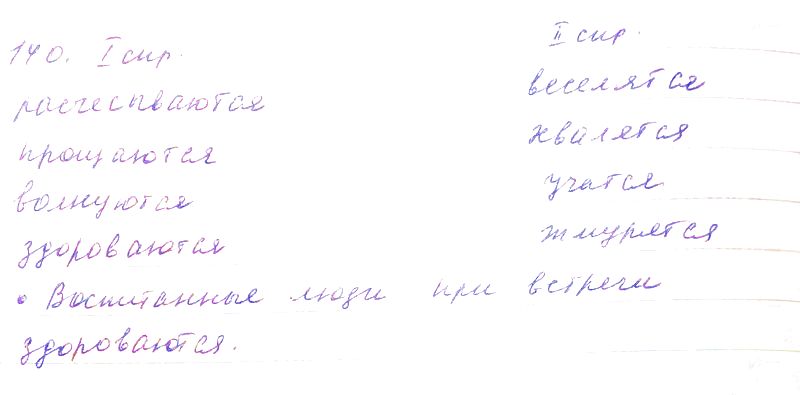 140. I спр. II спр.
расчесываются веселятся
прощаются хвалятся
волнуются учатся
здороваются жмурятся
• Воспитанные люди при встречи
здороваются.